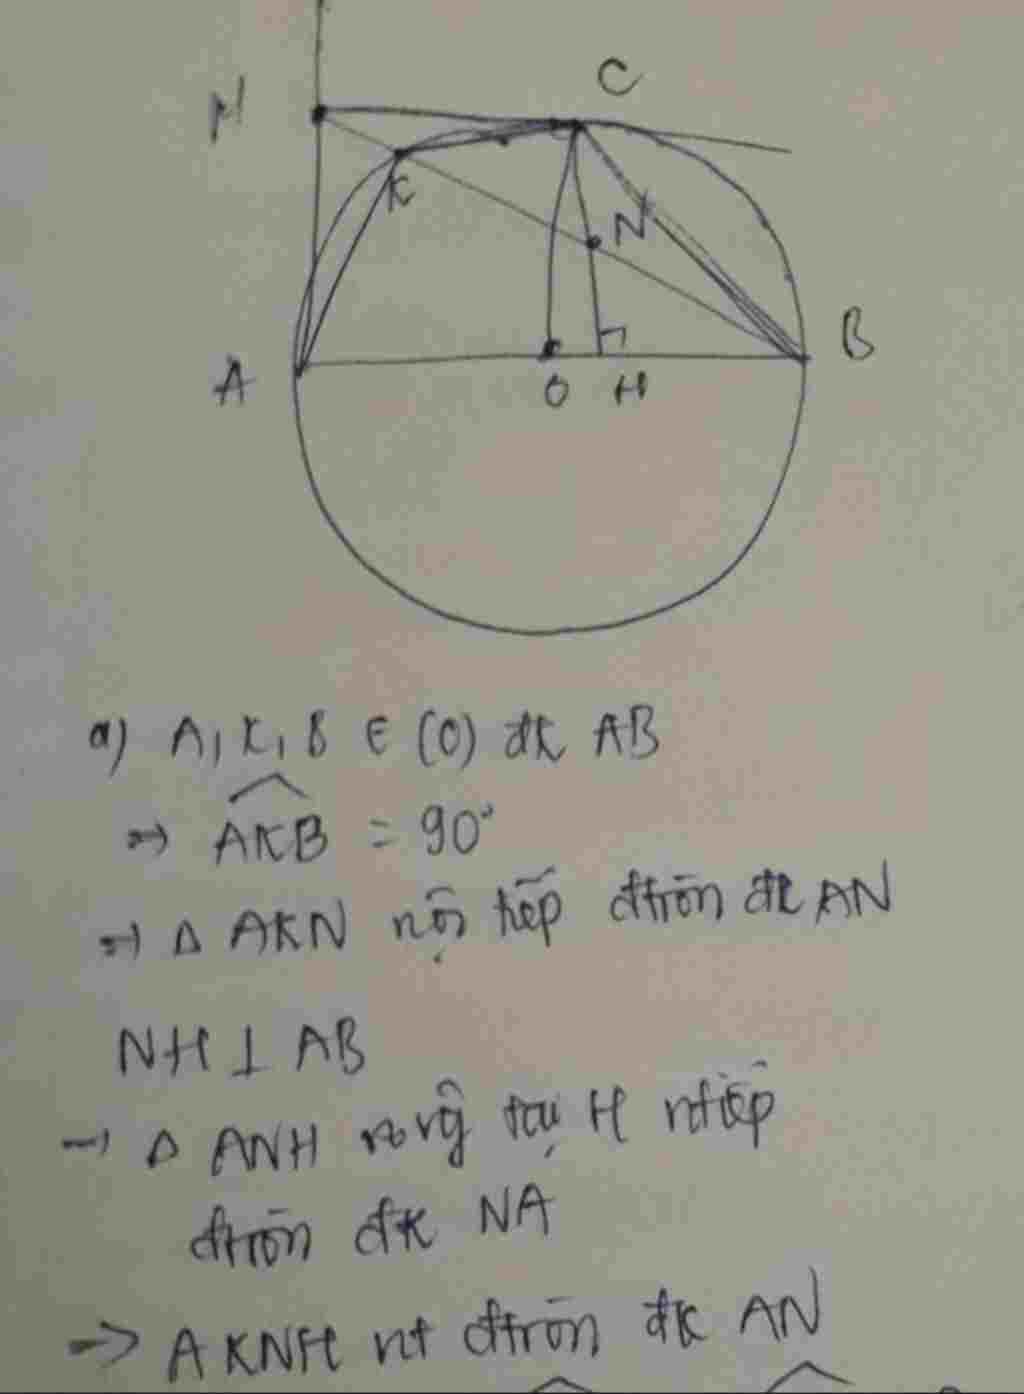 M
C
K
N
A
O
H
B
a) A, K, B ∈ (O) đk AB
=> AKB = 90°
=> Δ AKN nội tiếp đtròn đk AN
NH ⊥ AB
→ Δ ANH vuông tại H ntiếp
đtròn đk NA
=> AKNH nt đtròn đk AN